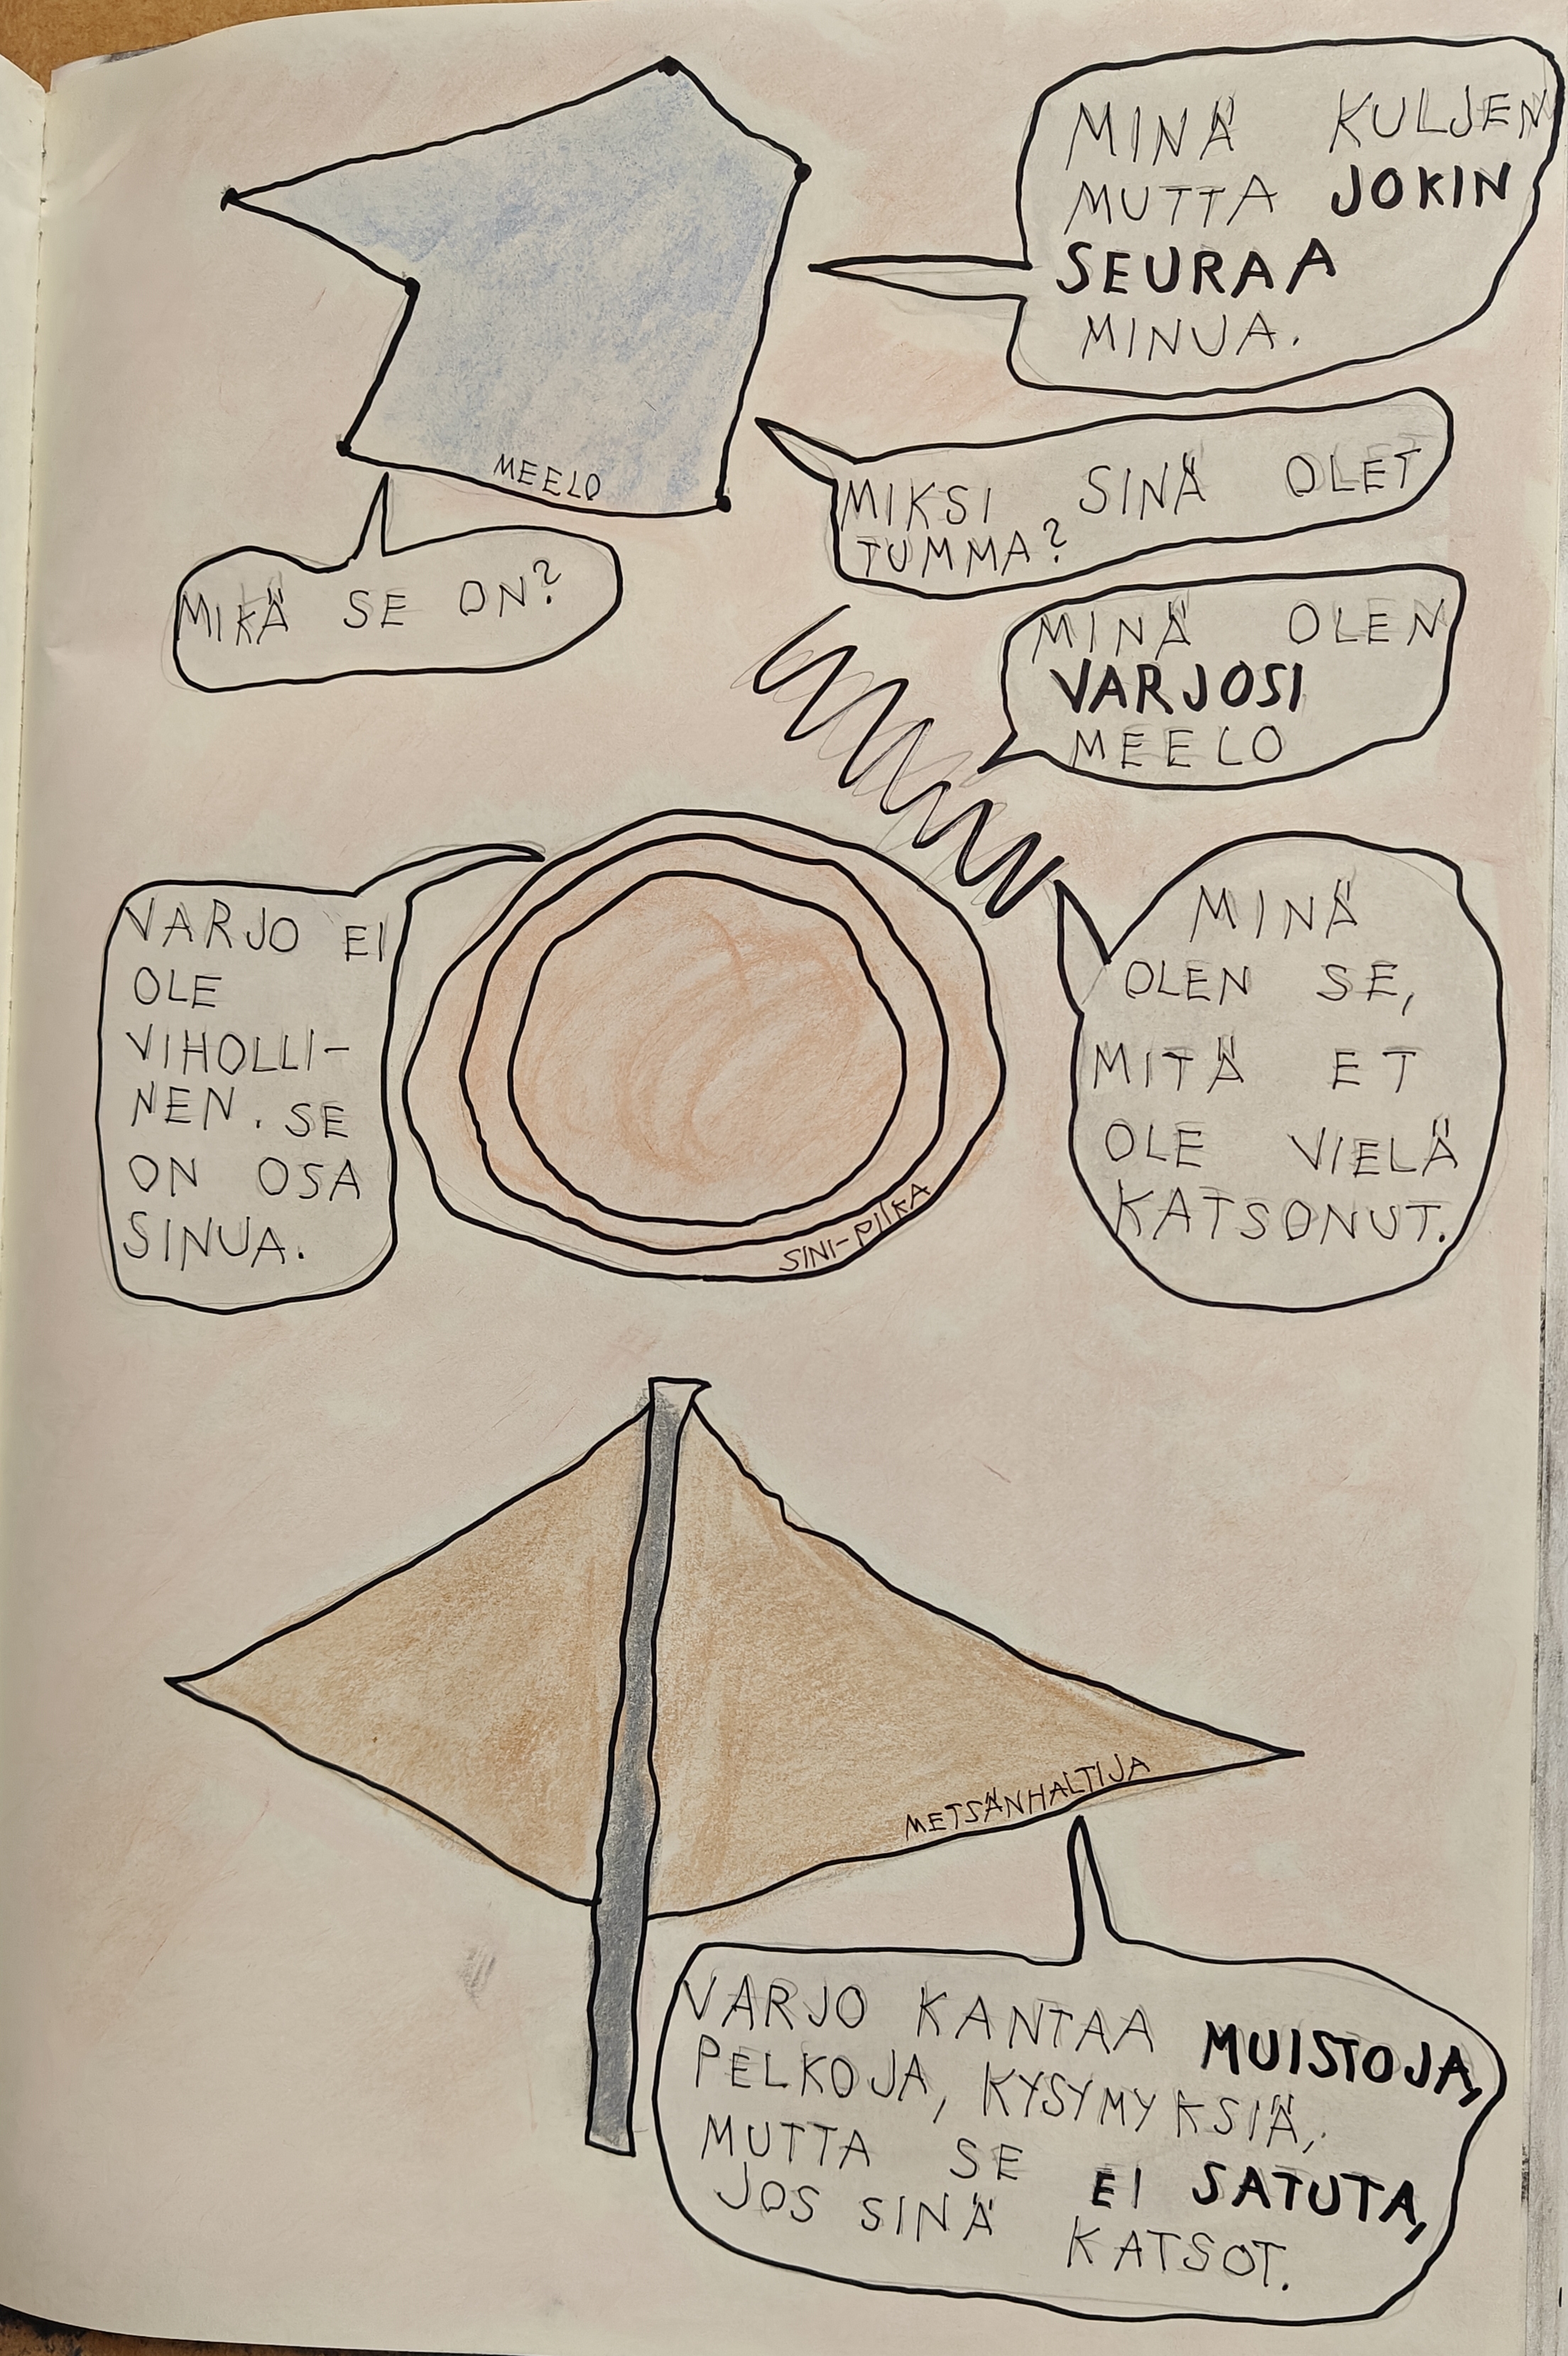 MINÄ KULJEN
MUTTA JOKIN
SEURAA
MINUA.
MEELO
MIKÄ SE ON?
MIKSI SINÄ OLET
TUMMA?
MINÄ OLEN
VARJOSI
MEELO
VARJO EI
OLE
VIHOLLI-
NEN. SE
ON OSA
SINUA.
SINI-PILKA
MINÄ
OLEN SE,
MITÄ ET
OLE VIELÄ
KATSONUT.
METSÄNHALTIJA
VARJO KANTAA MUISTOJA,
PELKOJA, KYSYMYKSIÄ,
MUTTA SE EI SATUTA,
JOS SINÄ KATSOT.